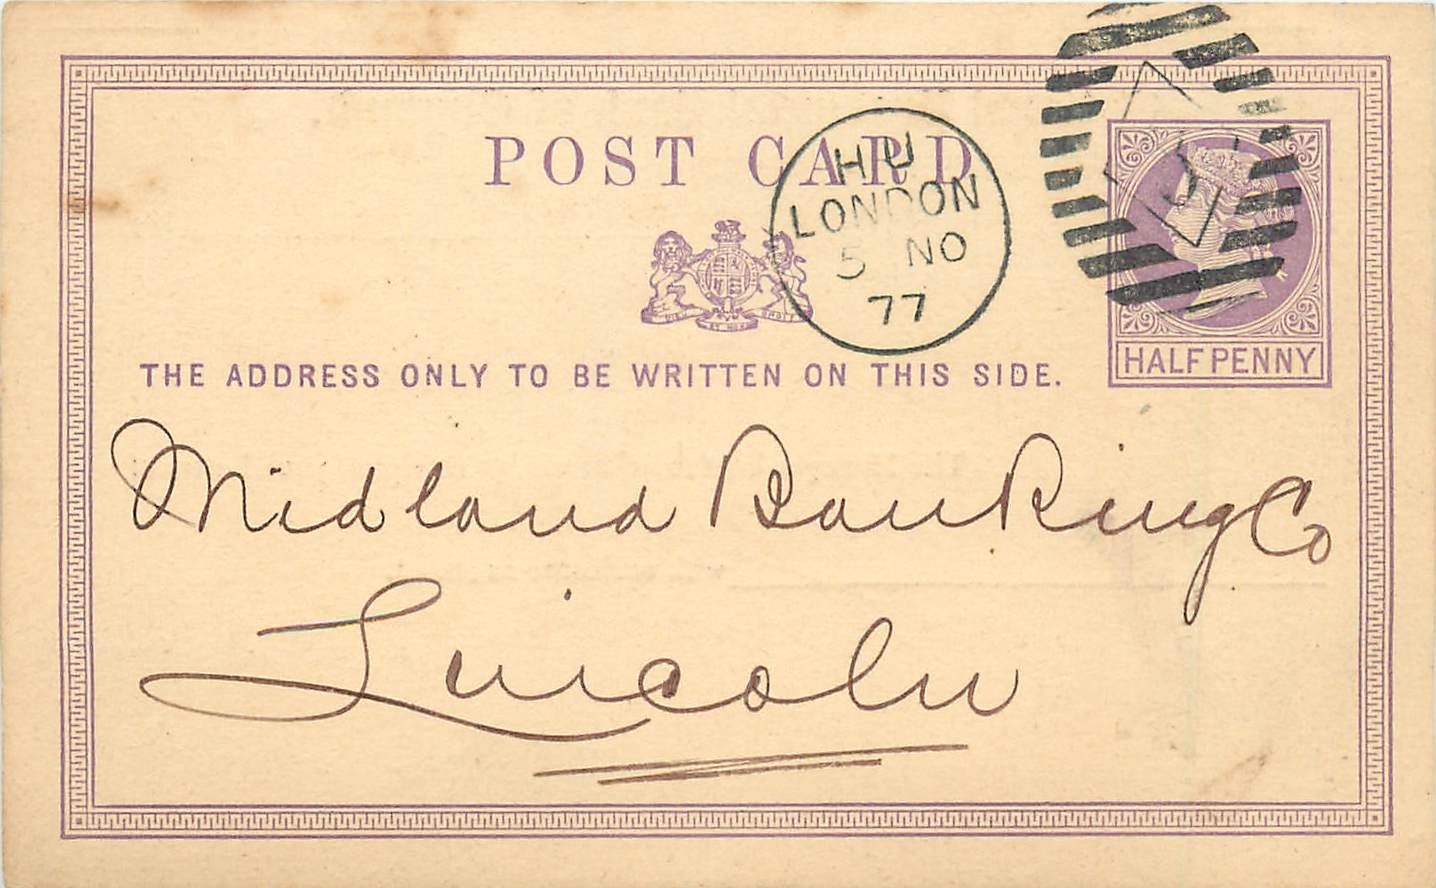 POST CARD
H U
LONDON
5 NO
77
DIEU ET MON DROIT
HALF PENNY
THE ADDRESS ONLY TO BE WRITTEN ON THIS SIDE.
Midland Banking Co
Lincoln